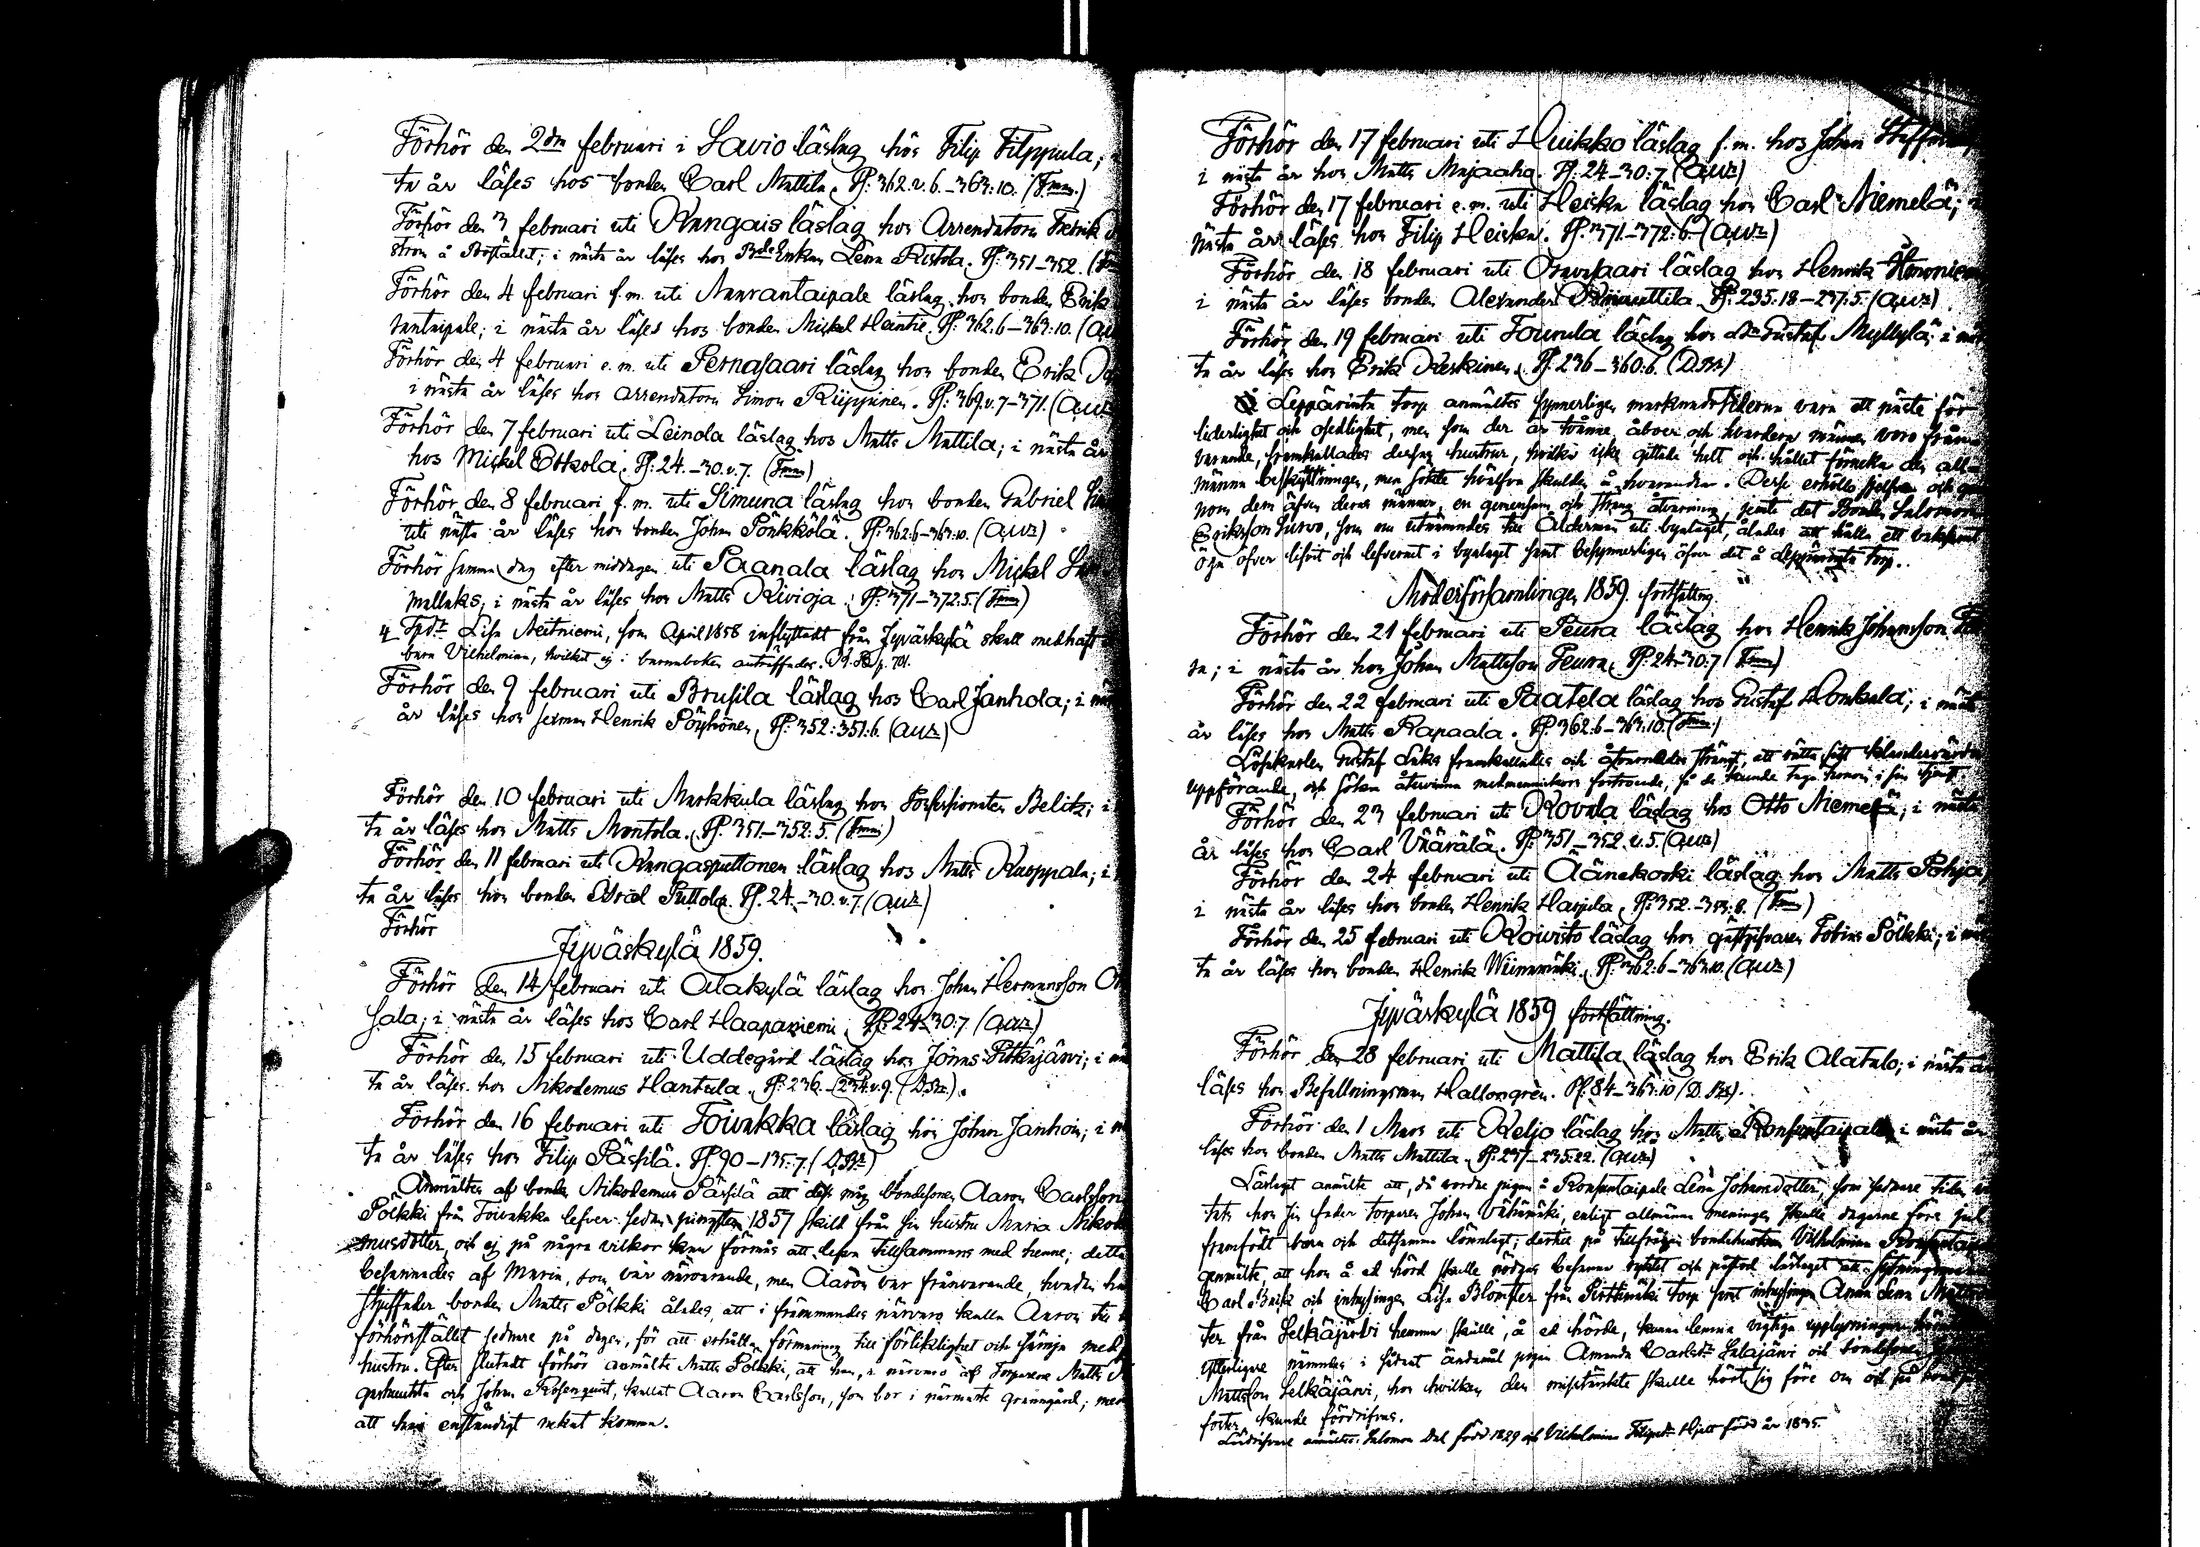 Förhör den 2dra februari i Savio läslag hos Filip Filppula;
ta år läses hos bonden Carl Mattila. Pf: 362.v.6.–363:10. (Fmn.)
Förhör den 3 februari uti Kangais läslag hos Arrendatorn Fredrik
ström å Bostället; i nästa år läses hos Bde Enkan Lena Ristola. Pf: 351–352.
Förhör den 4 februari f.m. uti Annrantaipale läslag hos bonden Erik
rantaipale; i nästa år läses hos bonden Mickel Heintie. Pf: 362.6–363:10.
Förhör den 4 februari e.m. uti Pernasaari läslag hos bonden Erik
i nästa år läses hos arrendatorn Simon Riippinen. Pf: 369.v.7–371. (Aur)
Förhör den 7 februari uti Leinola läslag hos Matts Mattila; i nästa år
hos Mickel Eskola. Pf: 24.–30.v.7. (Fmn)
Förhör den 8 februari f.m. uti Simuna läslag hos bonden Gabriel
uti nästa år läses hos bonden Johan Pönkkölä. Pf: 362:6–363:10. (Aur)
Förhör samma dag efter middagen uti Paanala läslag hos Mickel
mallaks; i nästa år läses hos Matts Kivioja. Pf: 371–372:5. (Fmn)
Lisa Neitniemi, som April 1858 inflyttadt från Jyväskylä skall medhaft
barn Vilhelmina, hvilket ej i barnaboken anträffades. p. 701.
Förhör den 9 februari uti Brusila läslag hos Carl Janhola; i
år läses hos Henrik Pöyhönen, Pf: 352:351:6. (Aur)
Förhör den 10 februari uti Markkula läslag hos Possessionaten Belitz; i
ta år läses hos Matts Montola. Pf: 351–352:5. (Fmn)
Förhör den 11 februari uti Kangasputtonen läslag hos Matts Kuoppala; i
ta år läses hos bonden Israel Puttola. Pf. 24.–30.v.7. (Aur)
Förhör
Jyväskylä 1859.
Förhör den 14 februari uti Alakylä läslag hos Johan Hermansson
sala; i nästa år läses hos Carl Haapaniemi. Pf: 24–30:7 (Aur)
Förhör den 15 februari uti Uddegård läslag hos Jonas Pitkäjärvi; i
ta år läses hos Nikodemus Hantula. Pf: 236.–234.v.9. (D.Br.).
Förhör den 16 februari uti Toivakka läslag hos Johan Janhoin; i
ta år läses hos Filip Pässilä. Pf. 90–135:7. (D.Br)
Anmältes af bonden Nikodemus Pässilä att dess måg bondesonen Aaron Carlsson
Pölkki från Toivakka lefver sedan pingsten 1857 skild från sin hustru Maria
musdotter, och ej på några vilkor kan förmås att lefva tillsammans med henne; detta
besannades af Maria, som var närvarande, men Aaron var frånvarande, hvadan
styffader bonden Matts Pölkki ålades, att i främmandes närvaro kalla Aaron till
förhörsstället sednare på dagen, för att erhålla förmaning till förliklighet och sämja med
hustru. Efter slutadt förhör anmälte Matts Pölkki, att han, i närvaro af Torparen Matts
och Johan Rosenqvist, kallat Aaron Carlsson, som bor i närmaste granngård; men
att han enständigt nekat komma.
Förhör den 17 februari uti Huikko läslag f.m. hos Johan
i nästa år hos Matts Majaaho. Pf. 24–30:7 (Aur)
Förhör den 17 februari e.m. uti Heiska läslag hos Carl Niemelä;
nästa år läses hos Filip Heiska. Pf. 371–372:6. (Aur)
Förhör den 18 februari uti Oravasaari läslag hos Henrik
i nästa år läses bonden Alexander Pf: 235.18–237:5. (Aur)
Förhör den 19 februari uti Tourula läslag hos Gustaf Myllylä; i
ta år läses hos Erik Keskinen. Pf. 236–360:6. (D.Br)
Å Leppärinta torp anmältes synnerligen vara ett näste för
liderlighet och osedlighet, men som der är tvänne åboer och hvardera männen voro från-
varande, framkallades deras hustrur, hvilka icke gittade helt och hållet förneka den all-
männa beskyllningen, men sökte hvälfva skulden å hvarandra. Desse erhöllo sjelfva och
nom dem äfven deras männer, en gemensam och sträng åtvarning, jemte det Bonden Salomon
Eriksson Survo, som nu utnämndes till Ålderman uti byalaget, ålades att hålla ett vaksamt
öga öfver lifvet och lefvernet i byalaget samt besynnerligen äfven det å Leppärinta torp.
Moderförsamlingen 1859. fortsättng
Förhör den 21 februari uti Peura läslag hos Henrik Johansson
ra; i nästa år hos Johan Mattsson Peura. Pf: 24–30:7 (Fmn)
Förhör den 22 februari uti Paatela läslag hos Gustaf Honkala; i nästa
år läses hos Matts Rapaala. Pf: 362:6–363:10. (Fmn)
Löskarlen Gustaf framkallades och åtvarnades strängt, att rätta sitt klandervärda
uppförande, och söka återvinna medmenniskors förtroende, så de kunde taga honom i sin tjenst.
Förhör den 23 februari uti Kovala läslag hos Otto Niemelä; i nästa
år läses hos Carl Väärälä. Pf: 351–352.v.5. (Aur)
Förhör den 24 februari uti Äänekoski läslag hos Matts Pohja
i nästa år läses hos bonden Henrik Harjula. Pf: 352–353:8. (Fmn)
Förhör den 25 februari uti Koivisto läslag hos gästgifvaren Tobias Pölkki; i
ta år läses hos bonden Henrik Wiinamäki. Pf: 362:6–363:10. (Aur)
Jyväskylä 1859 fortsättning.
Förhör den 28 februari uti Mattila läslag hos Erik Alatalo; i nästa år
läses hos Befallningsman Hallongren. Pf. 84–363:10 (D.Br).
Förhör den 1 Mars uti Keljo läslag hos Matts Ronsuntaipale i nästa år
läses hos bonden Matts Mattila. Pf: 237–235:22. (Aur)
Läslaget anmälte att, då vordne pigan å Ronsuntaipale Lena Johansdotter, som sednare tiden
tats hos sin fader torparen Johan enligt allmänna meningen skulle dagarne före jul
framfödt barn och detsamma lönnlagt; dertill på tillfrågan bondehustrun Vilhelmina
genmälte, att hon å ed hörd skulle nödgas besanna ryktet och påstod läslaget
Carl och inhysingen Lisa Blomster från Pirttimäki torp samt inhysingen Anna Lena
ter från Selkäjärvi hemman skulle, å ed hörde, kunna lemna vigtiga upplysningar
Ytterligare nämndes i sådant ändamål pigan Amanda Carlsdr Salajärvi och bondesonen
Mattsson Selkäjärvi, hos hvilken den misstänkte skulle hört sig före om och huru
foster kunde fördrifvas.
Lösdrifvare anmältes: Salomon Dal född 1829 och Vilhelmina Filipsdr Hjelt född år 1835.